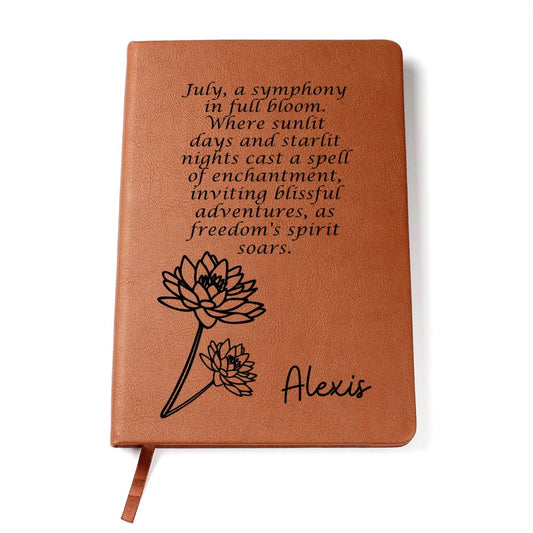 July, a symphony
in full bloom.
Where sunlit
days and starlit
nights cast a spell
of enchantment,
inviting blissful
adventures, as
freedom's spirit
soars.
Alexis